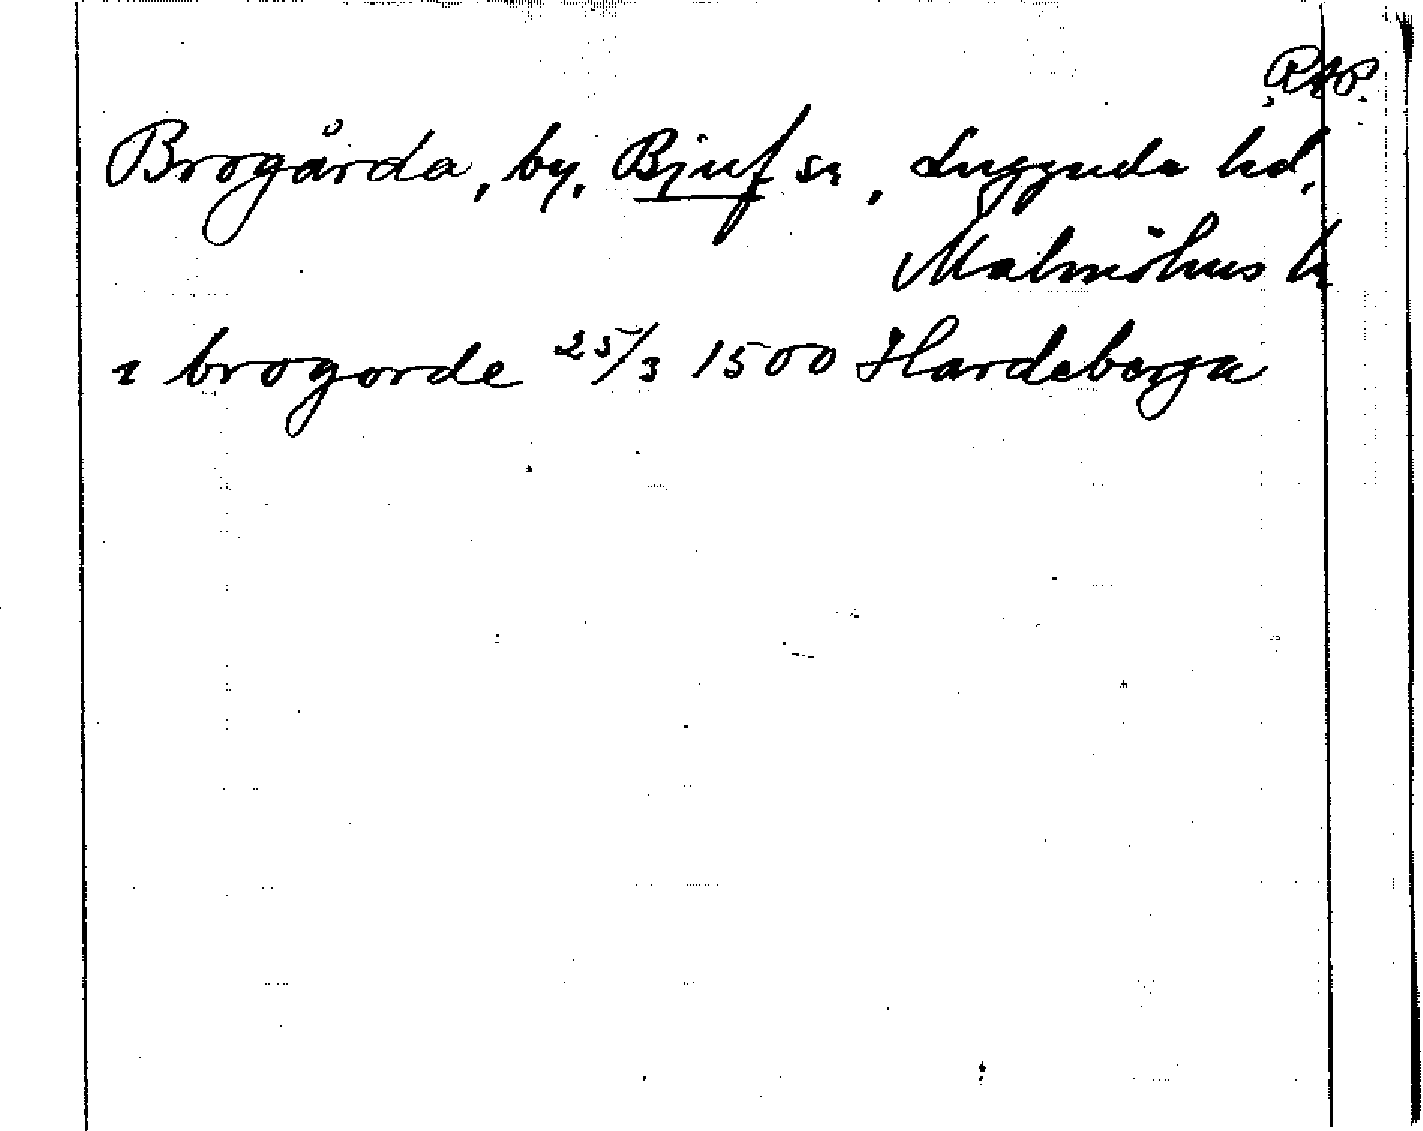 RAP.
Brogårda, by, Bjuf sn, Luggude hd,
Malmöhus l.
i brogorde 25/3 1500 Hardeberga